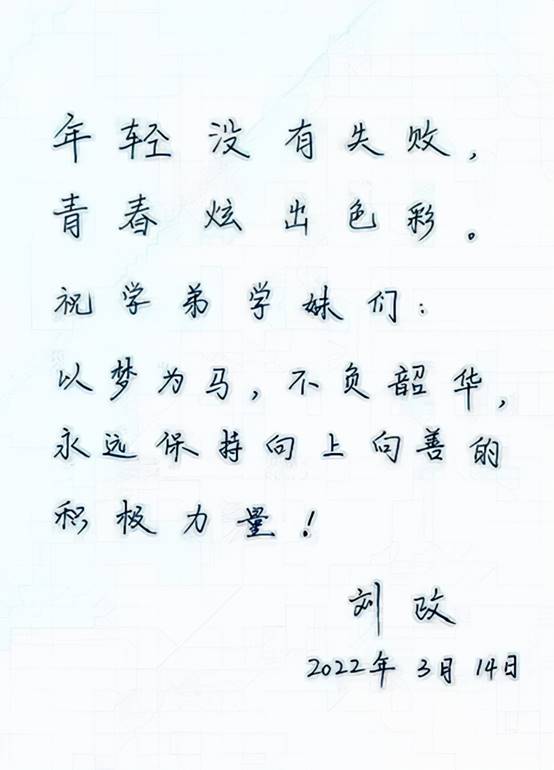 年轻没有失败，
青春炫出色彩。
祝学弟学妹们：
以梦为马，不负韶华，
永远保持向上向善的
积极力量！
刘政
2022年3月14日